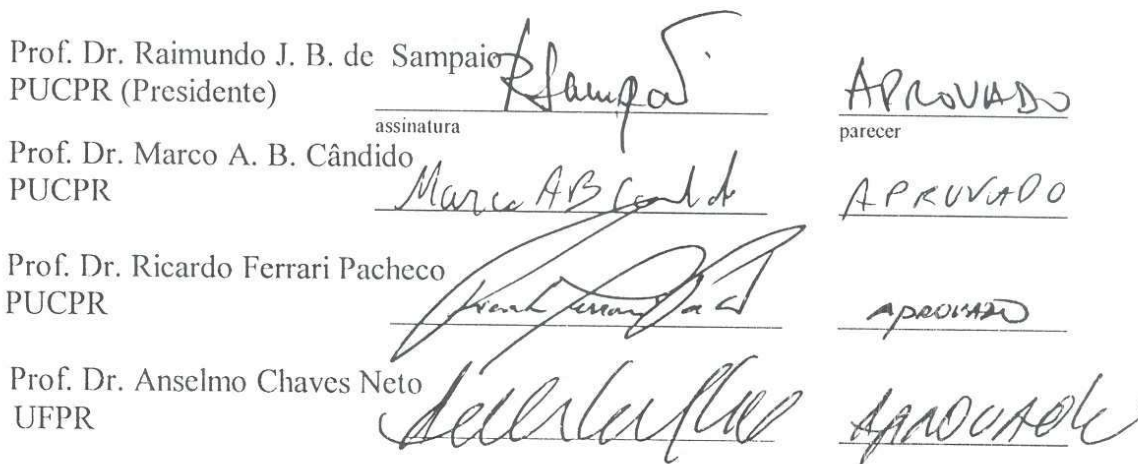 Prof. Dr. Raimundo J. B. de Sampaio RSampaio APROVADO
PUCPR (Presidente)
assinatura parecer
Prof. Dr. Marco A. B. Cândido
PUCPR Marco AB Candido APROVADO
Prof. Dr. Ricardo Ferrari Pacheco
PUCPR APROVADO
Prof. Dr. Anselmo Chaves Neto
UFPR APROVADO